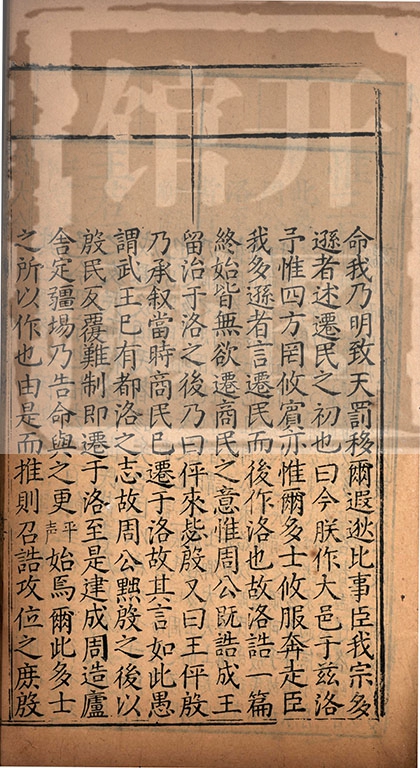 命我乃明致天罰移爾遐逖比事臣我宗多
遜者述遷民之初也曰今朕作大邑于茲洛
予惟四方罔攸賓亦惟爾多士攸服奔走臣
我多遜者言遷民而後作洛也故洛誥一篇
終始皆無欲遷商民之意惟周公既誥成王
留治于洛之後乃曰伻來毖殷又曰王伻殷
乃承叙當時商民已遷于洛故其言如此愚
謂武王已有都洛之志故周公黜殷之後以
殷民反覆難制即遷于洛至是建成周造廬
舍定疆場乃告命與之更平聲始焉爾此多士
之所以作也由是而推則召誥攻位之庶殷
開館